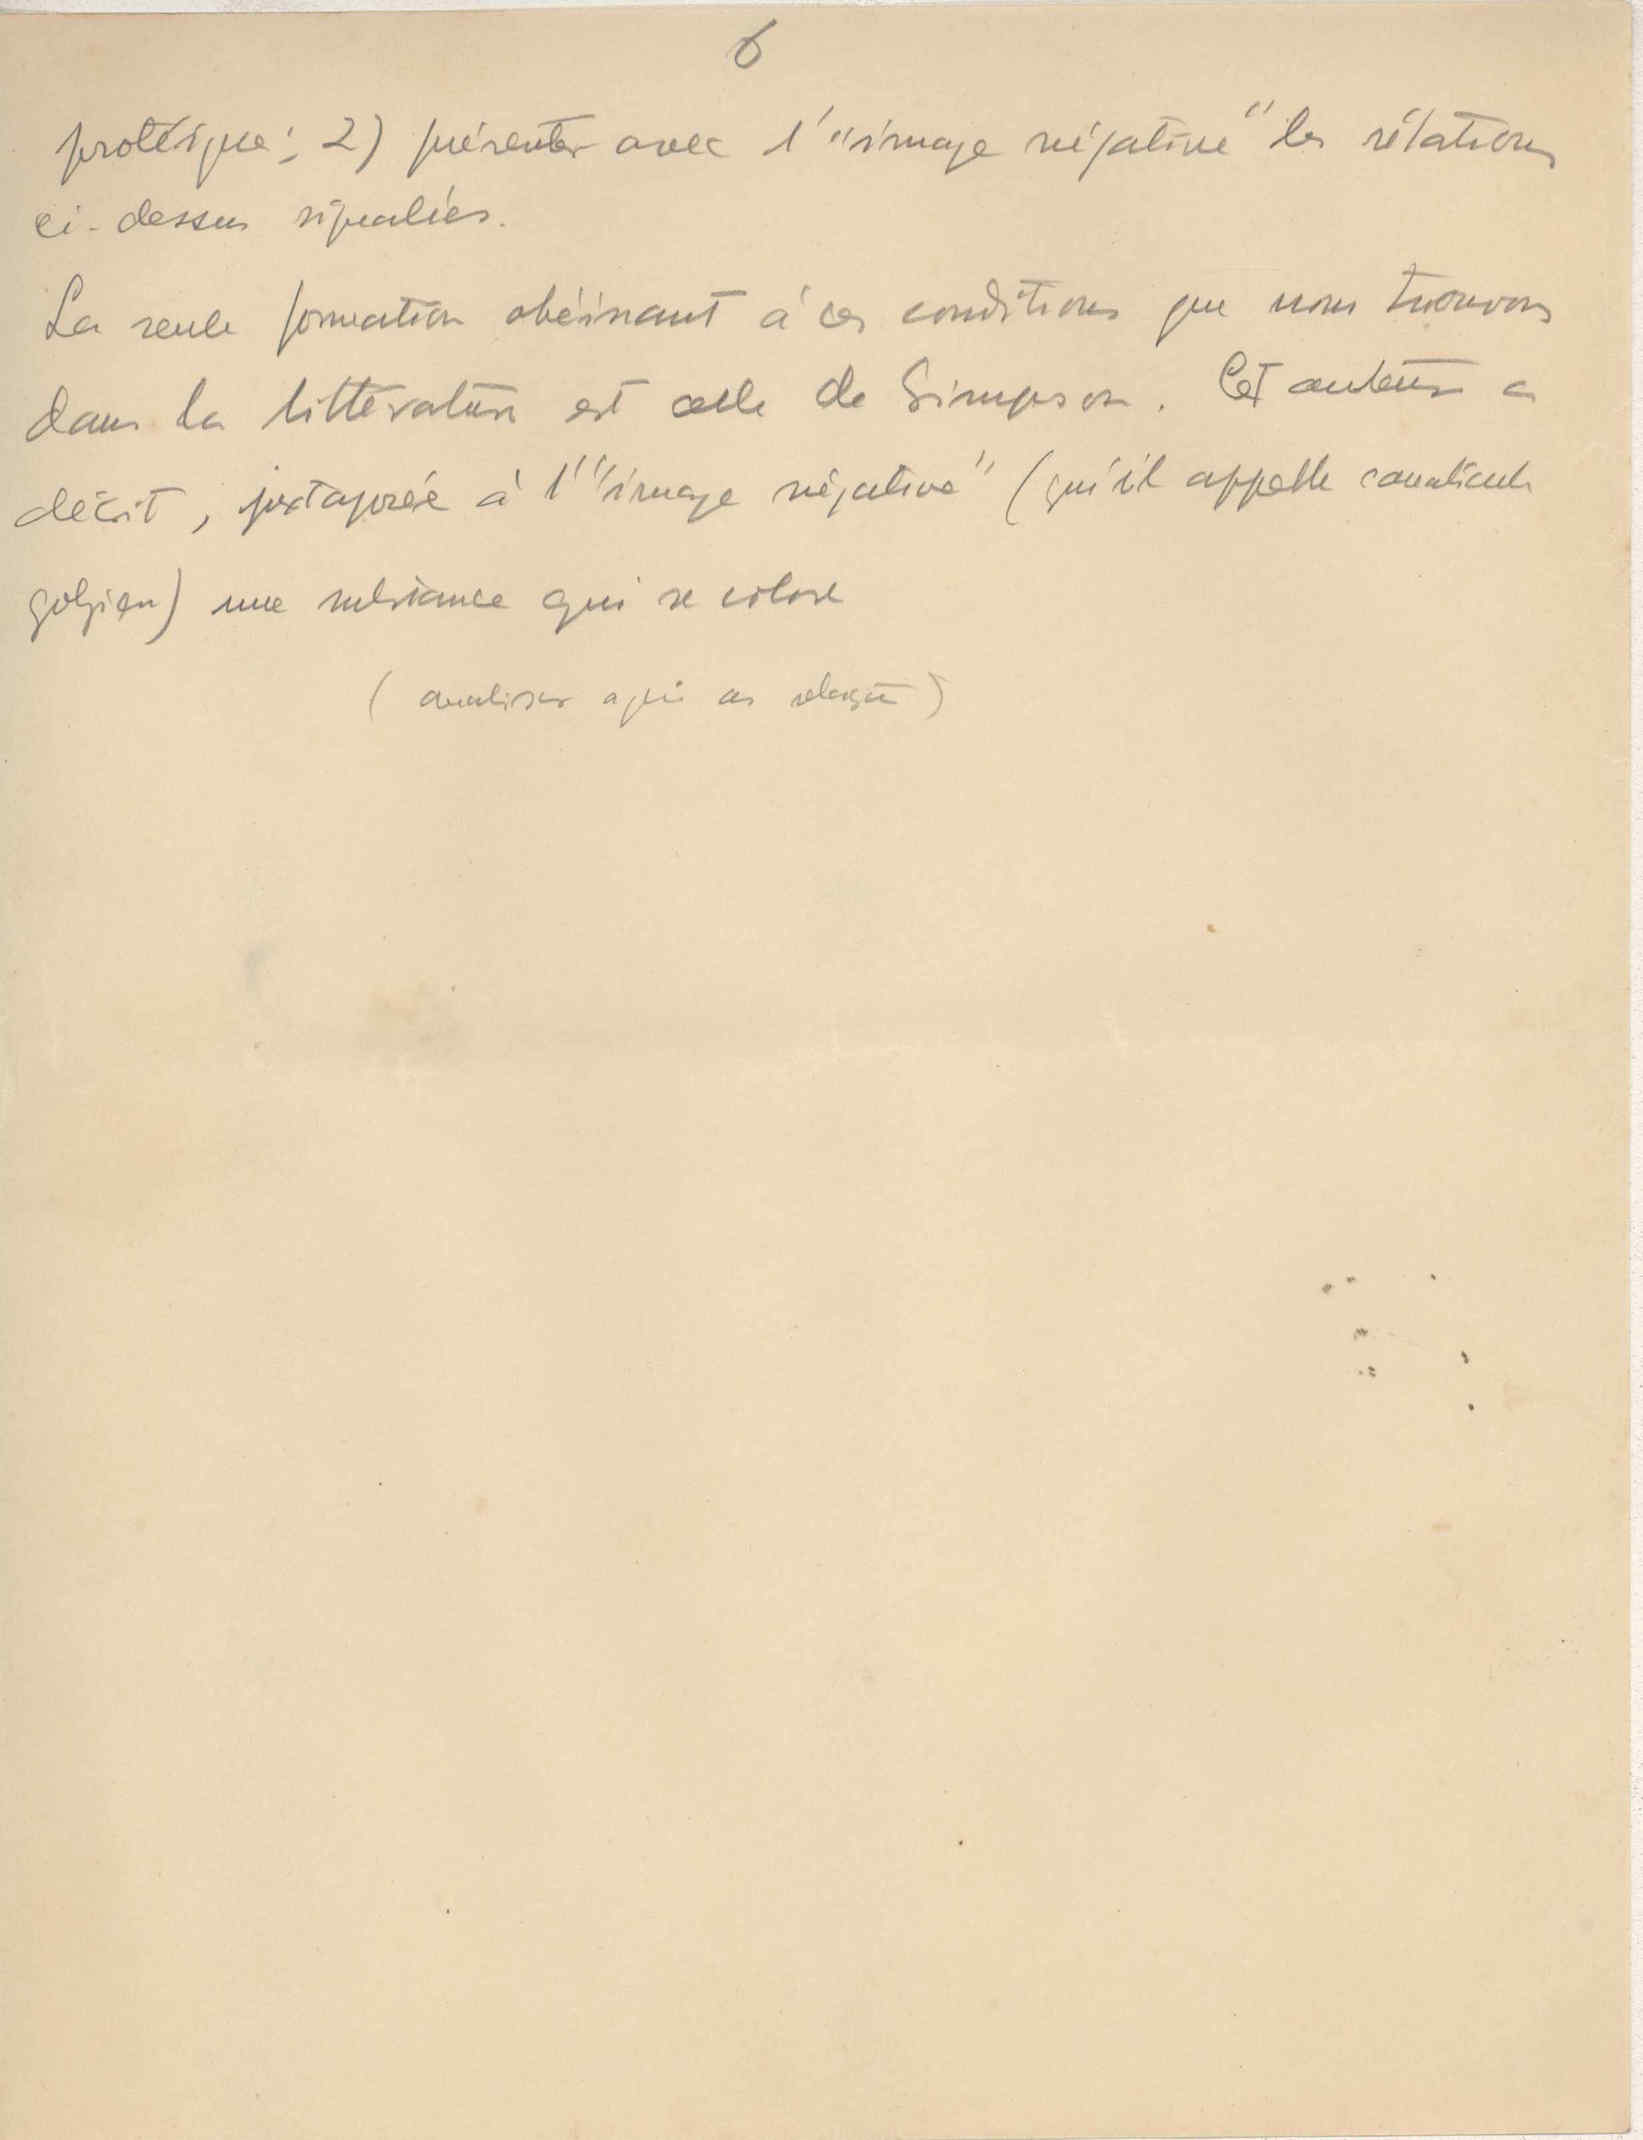 6
protéique; 2) présenter avec l'"image négative" les rélations
ci-dessus signalées.
La seule formation obéissant à ces conditions que nous trouvons
dans la littérature est celle de Simpson. Cet auteur a
décrit, juxtaposée à l'"image négative" (qu'il appelle canalicule
golgien) une substance qui se colore
(analisar aqui as